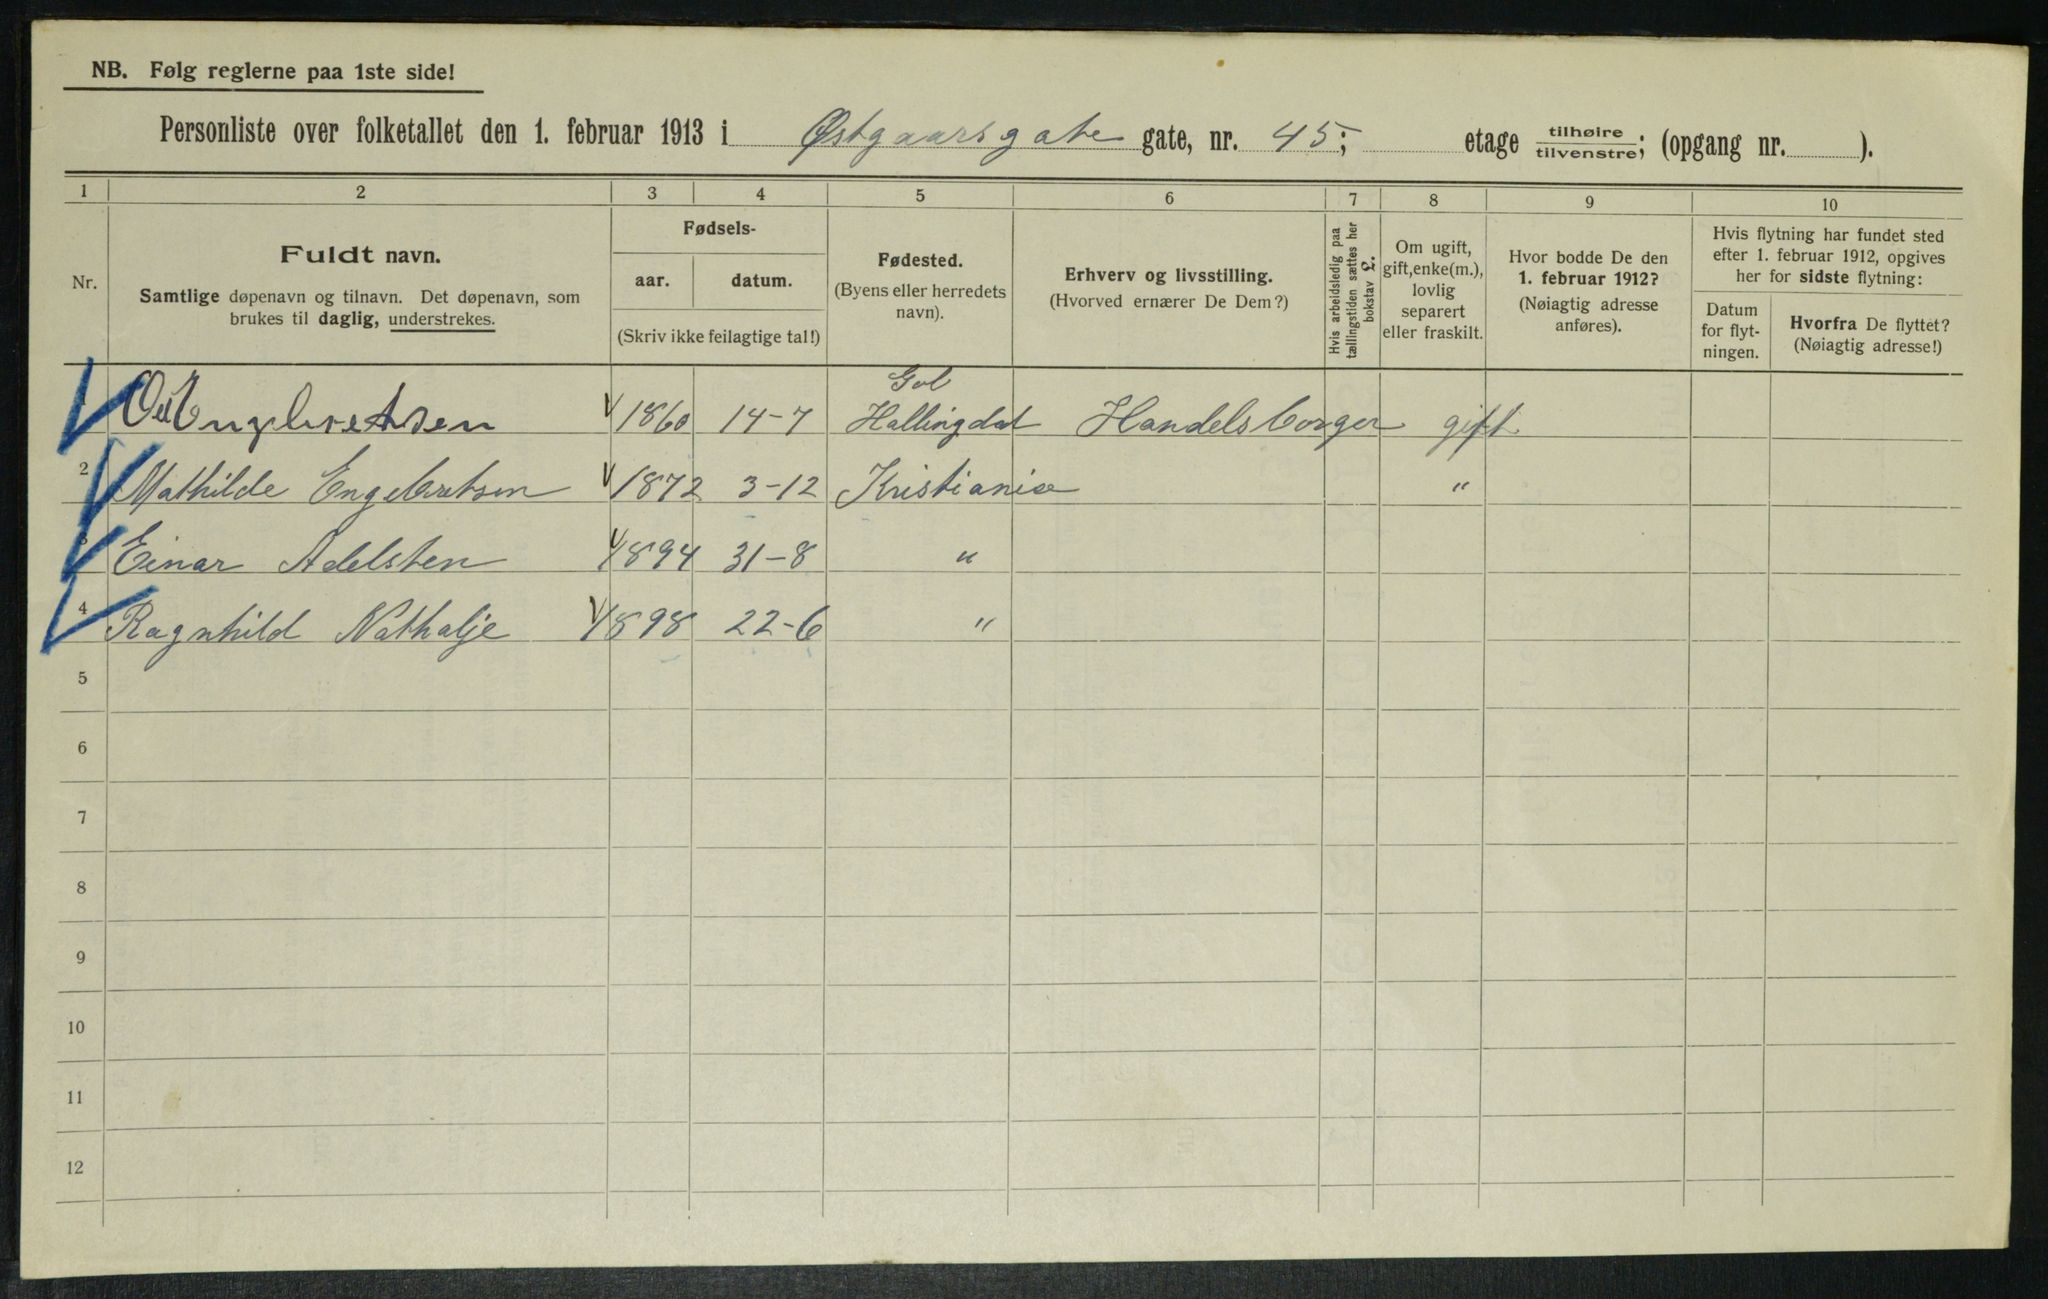 NB. Følg reglerne paa 1ste side!
Personliste over folketallet den 1. februar 1913 i Østgaarsgate gate, nr. 45; etage tilhøire/tilvenstre; (opgang nr. ).
1 2 3 4 5 6 7 8 9 10
Nr.
Fuldt navn.
Samtlige døpenavn og tilnavn. Det døpenavn, som
brukes til daglig, understrekes.
Fødsels-
aar. datum.
(Skriv ikke feilagtige tal!)
Fødested.
(Byens eller herredets
navn).
Erhverv og livsstilling.
(Hvorved ernærer De Dem?)
Hvis arbeidsledig paa
tællingstiden sættes her
bokstav L.
Om ugift,
gift, enke(m.),
lovlig
separert
eller fraskilt.
Hvor bodde De den
1. februar 1912?
(Nøiagtig adresse
anføres).
Hvis flytning har fundet sted
efter 1. februar 1912, opgives
her for sidste flytning:
Datum
for flyt-
ningen.
Hvorfra De flyttet?
(Nøiagtig adresse!)
Gol
Engebretsen 1860 14-7 Hallingdal Handelsborger gift
2 Mathilde Engebretsen 1872 3-12 Kristiania "
3 Einar Adelsten 1894 31-8 "
4 Ragnhild Nathalje 1898 22-6 "
5
6
7
8
9
10
11
12